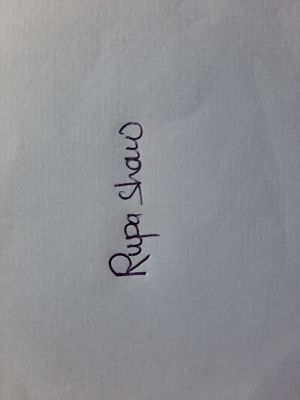 Rupa Shaw